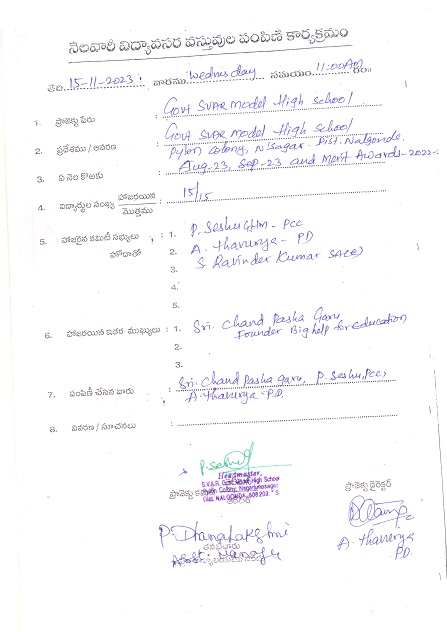 నెలవారీ విద్యావసర వస్తువుల పంపిణి కార్యక్రమం
తేది 15-11-2023 వారము Wednesday సమయం 11:00AM గం॥
1. ప్రాజెక్టు పేరు : Govt SVAR Model High school
2. ప్రదేశము / ఆవరణ : Govt SVAR Model High school
Pylon Colony, N'Sagar. Dist. Nalgonda.
3. ఏ నెల కొఱకు : Aug-23, Sep-23 and Merit Awards-2022-
4. విద్యార్థుల సంఖ్య హాజరయిన / మొత్తము : 15/15
5. హాజరైన కమిటీ సభ్యులు హోదాతో : 1. P. Seshu GHM - PCC
2. A. Thavurya - PD
3. S Ravinder Kumar SA(E)
4.
5.
6. హాజరయిన ఇతర ముఖ్యులు : 1. Sri. Chand Pasha Garu,
Founder Big help for education
2.
3.
7. పంపిణీ చేసిన వారు : Sri. Chand Pasha garu, P. Seshu, PCC,
A. Thavurya - P.D.
8. వివరణ / సూచనలు :
P. Seshu
Headmaster,
S.V.A.R. Govt. Model High School
Pylon Colony, Nagarjunasagar
Dist. NALGONDA, 508 203. T S
ప్రాజెక్టు ప్రాజెక్టు డైరెక్టర్
P. Dhanalakshmi
Asst. Manager
A. Thavurya
PD.